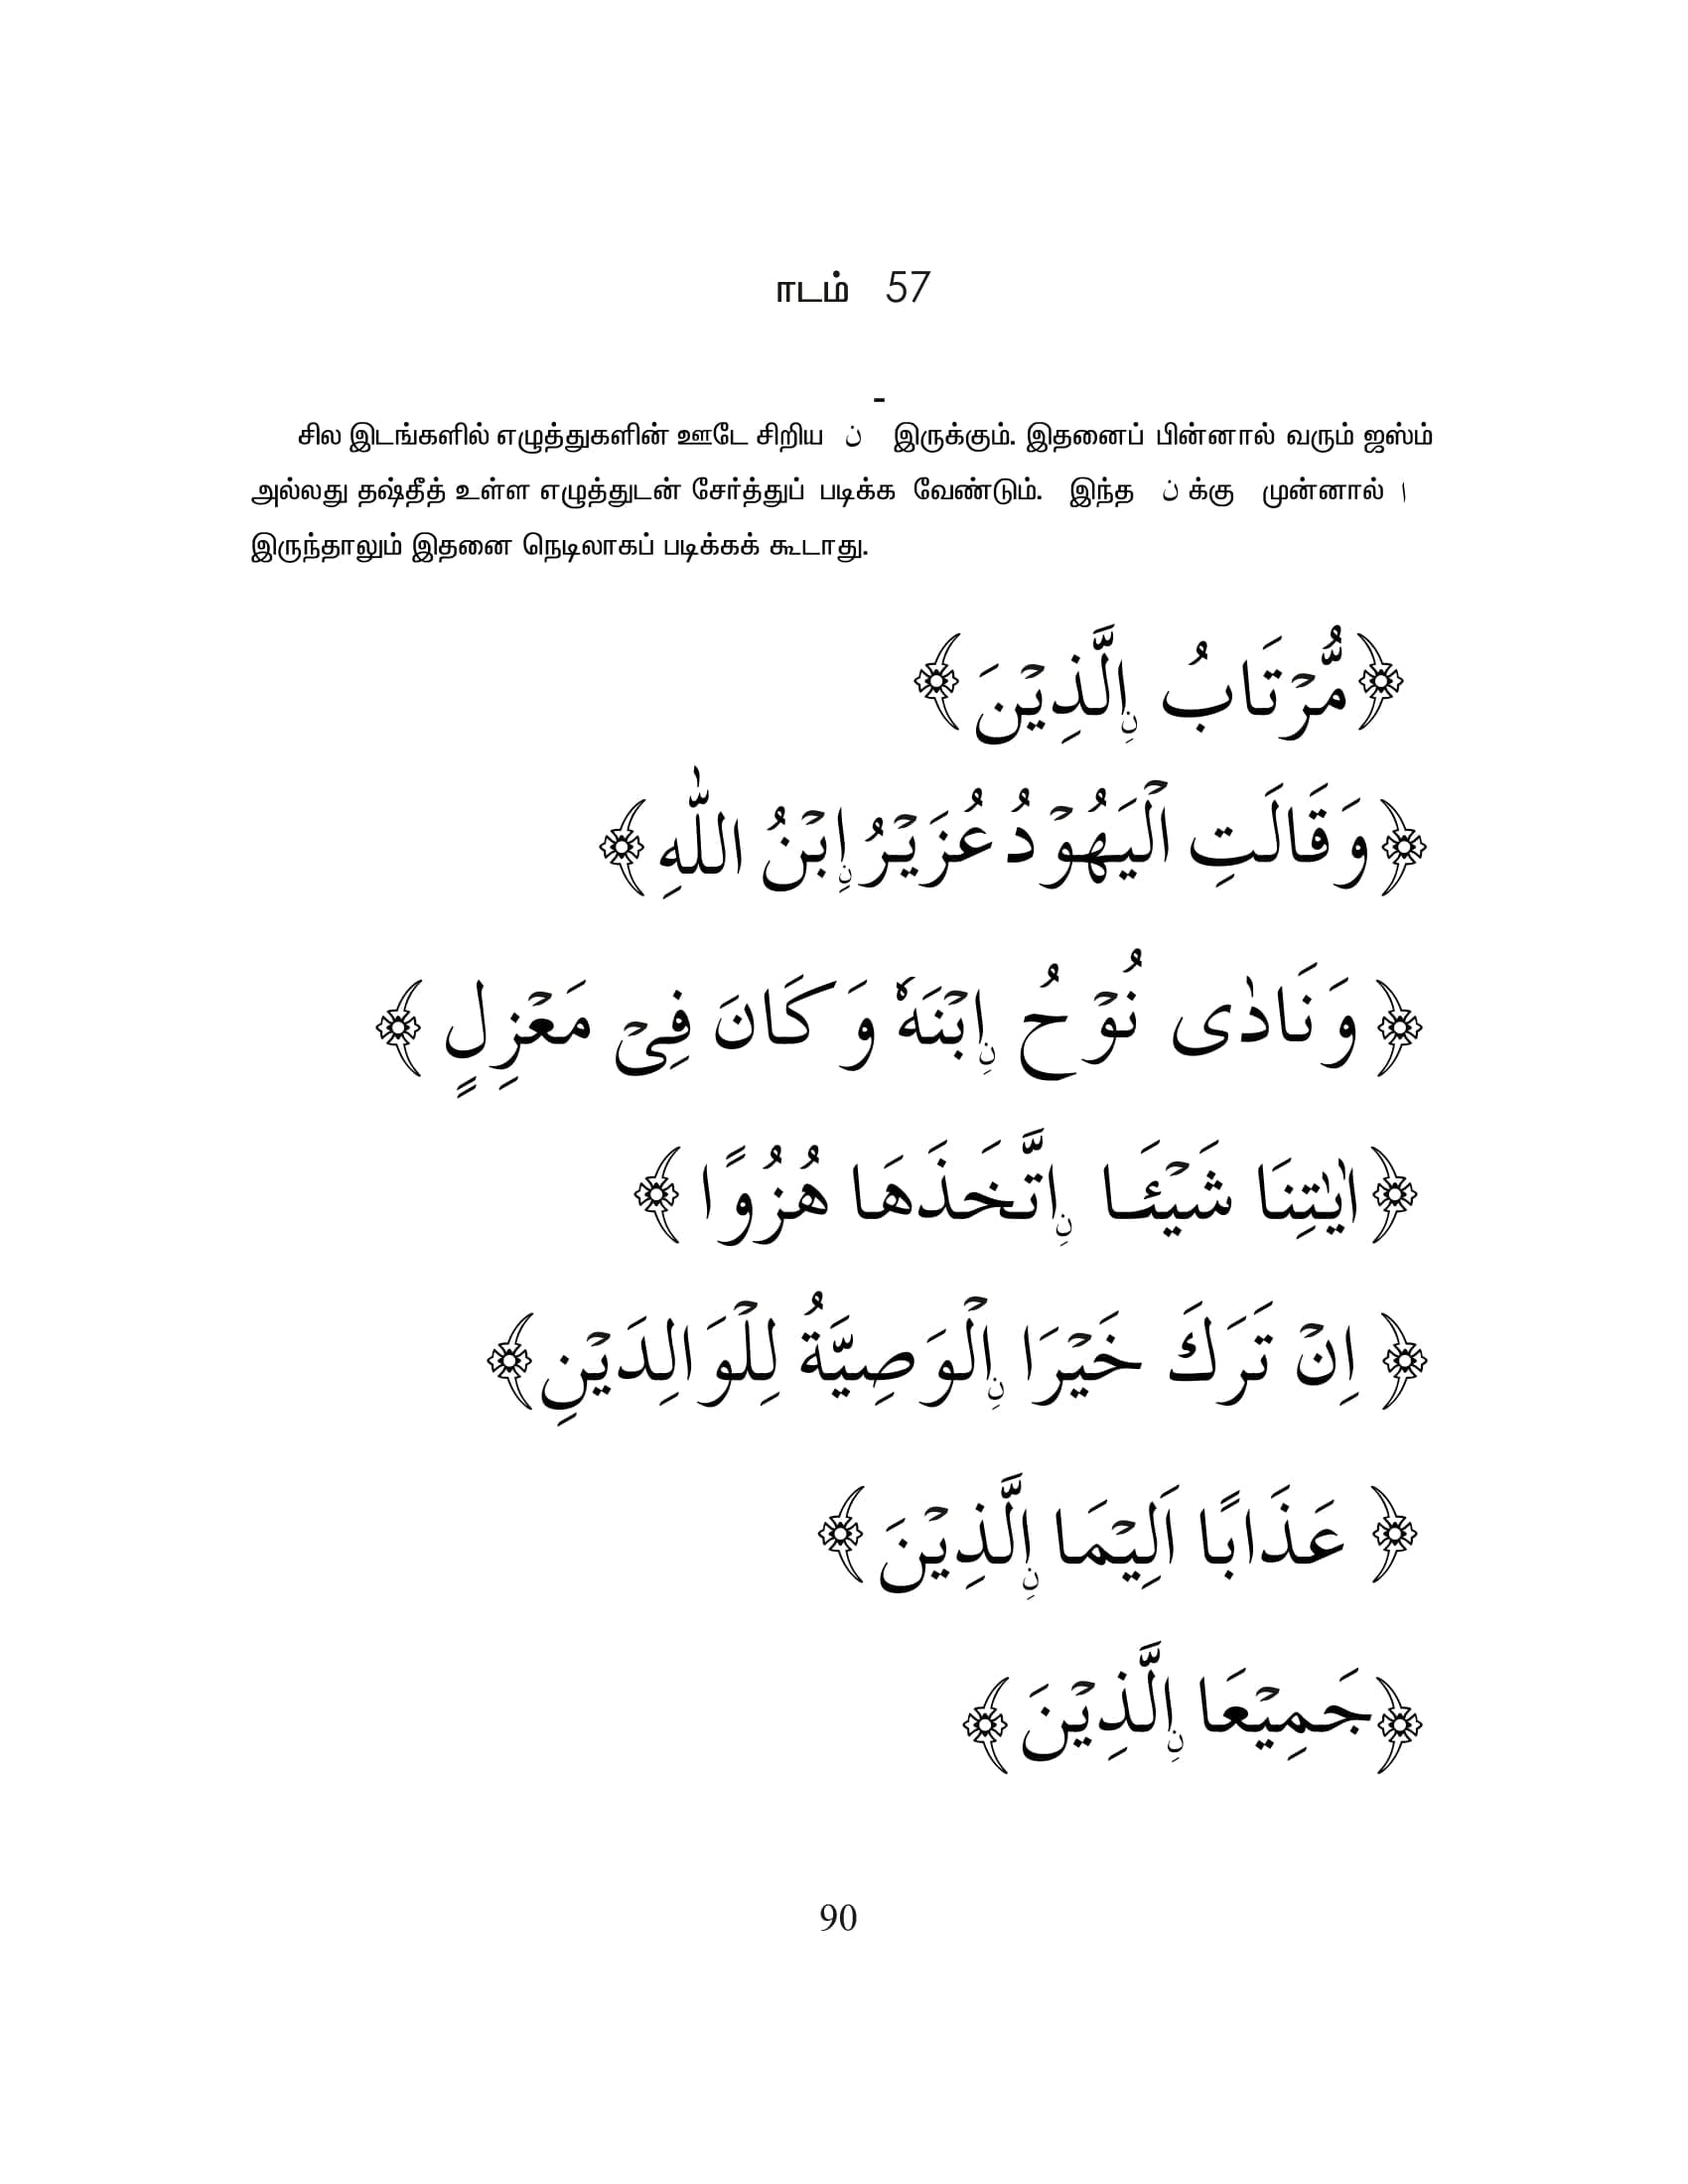 ாடம் 57
-
சில இடங்களில் எழுத்துகளின் ஊடே சிறிய ن இருக்கும். இதனைப் பின்னால் வரும் ஜஸ்ம்
அல்லது தஷ்தீத் உள்ள எழுத்துடன் சேர்த்துப் படிக்க வேண்டும். இந்த ن க்கு முன்னால் ا
இருந்தாலும் இதனை நெடிலாகப் படிக்கக் கூடாது.
﴿مُّرْتَابُ ۨالَّذِيْنَ﴾
﴿وَقَالَتِ الْيَهُوْدُ عُزَيْرُ ۨابْنُ اللّٰهِ﴾
﴿وَنَادٰى نُوْحُ ۨابْنَهٗ وَكَانَ فِىْ مَعْزِلٍ﴾
﴿اٰيٰتِنَا شَيْئَـا ۨاتَّخَذَهَا هُزُوًا﴾
﴿اِنْ تَرَكَ خَيْرَا ۨالْوَصِيَّةُ لِلْوَالِدَيْنِ﴾
﴿عَذَابًا اَلِيْمَا ۨالَّذِيْنَ﴾
﴿جَمِيْعَا ۨالَّذِيْنَ﴾
90